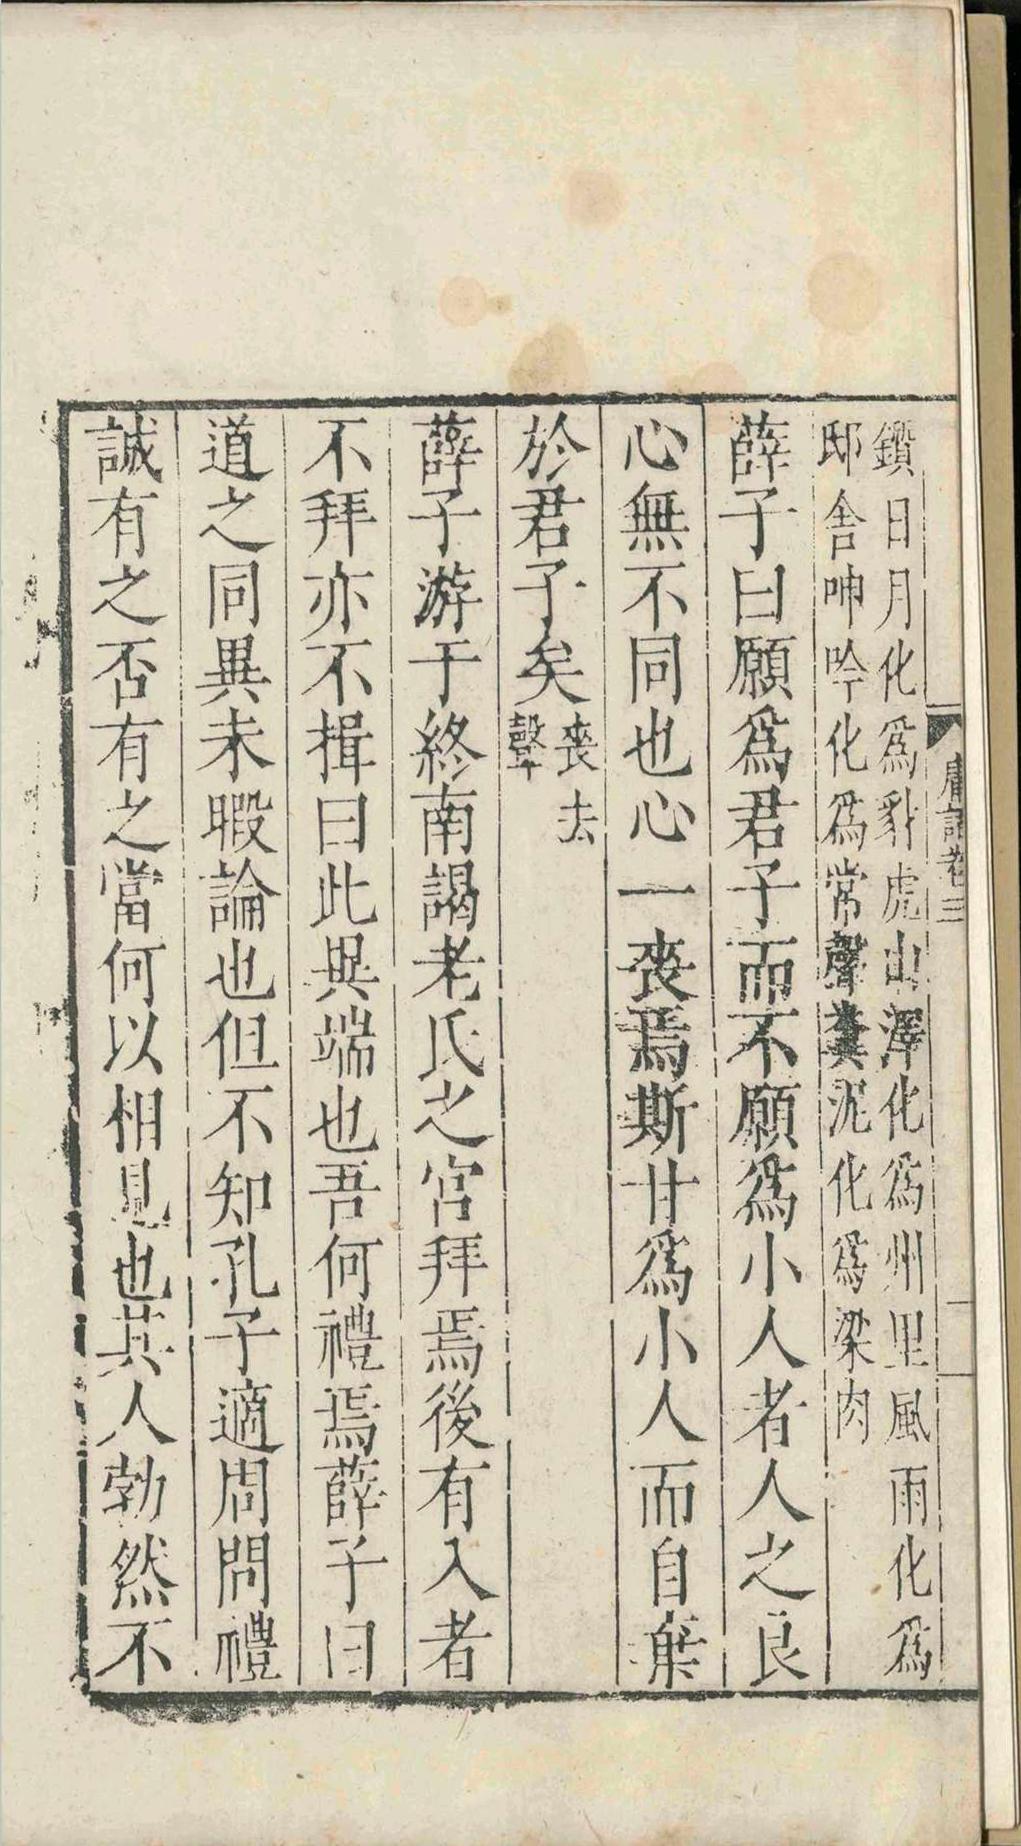 鑽日月化爲豺虎山澤化爲州里風雨化爲
邸舍呻吟化爲常聲糞泥化爲梁肉
薛子曰願爲君子而不願爲小人者人之良
心無不同也心一喪焉斯甘爲小人而自棄
於君子矣喪去
聲
薛子游于終南謁老氏之宮拜焉後有入者
不拜亦不揖曰此異端也吾何禮焉薛子曰
道之同異未暇論也但不知孔子適周問禮
誠有之否有之當何以相見也其人勃然不